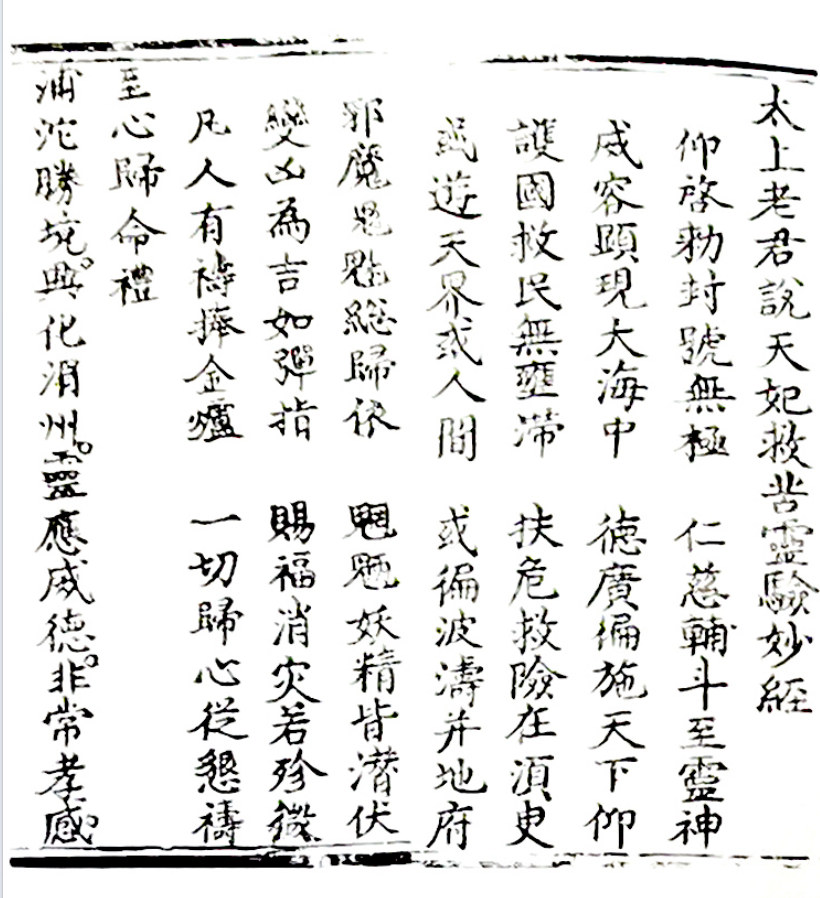 太上老君說天妃救苦靈驗妙經
仰啓勅封號無極 仁慈輔斗至靈神
威容顯現大海中 德廣徧施天下仰
護國救民無壅滯 扶危救險在湏臾
或遊天界或人間 或徧波濤并地府
邪魔鬼魅総歸依 魍魎妖精皆潜伏
變凶為吉如彈指 賜福消灾若殄
凡人有禱捧金爐 一切歸心從懇禱
至心歸命禮
浦沱勝境。興化湄州。靈應威德。非常孝感。